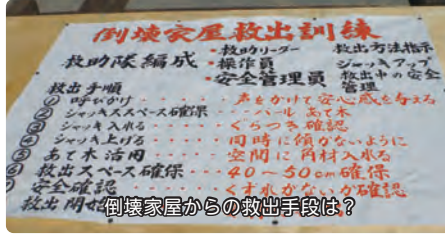 倒壊家屋救出訓練
救助隊編成 ・救助リーダー 救出方法指示
・操作員 ジャッキアップ
・安全管理員 救出中の安全管理
救出手順
① 呼びかけ・・・・・声をかけて安心感を与える
② ジャッキスペース確保・・・バール あて木
③ ジャッキ入れる・・・・ぐらつき確認
④ ジャッキ上げる・・・・同時に傾かないように
⑤ あて木活用・・・・空間に角材入れる
⑥ 救出スペース確保・・・40～50cm確保
安全確認・・・・・くずれがないか確認
救出開始
倒壊家屋からの救出手段は？